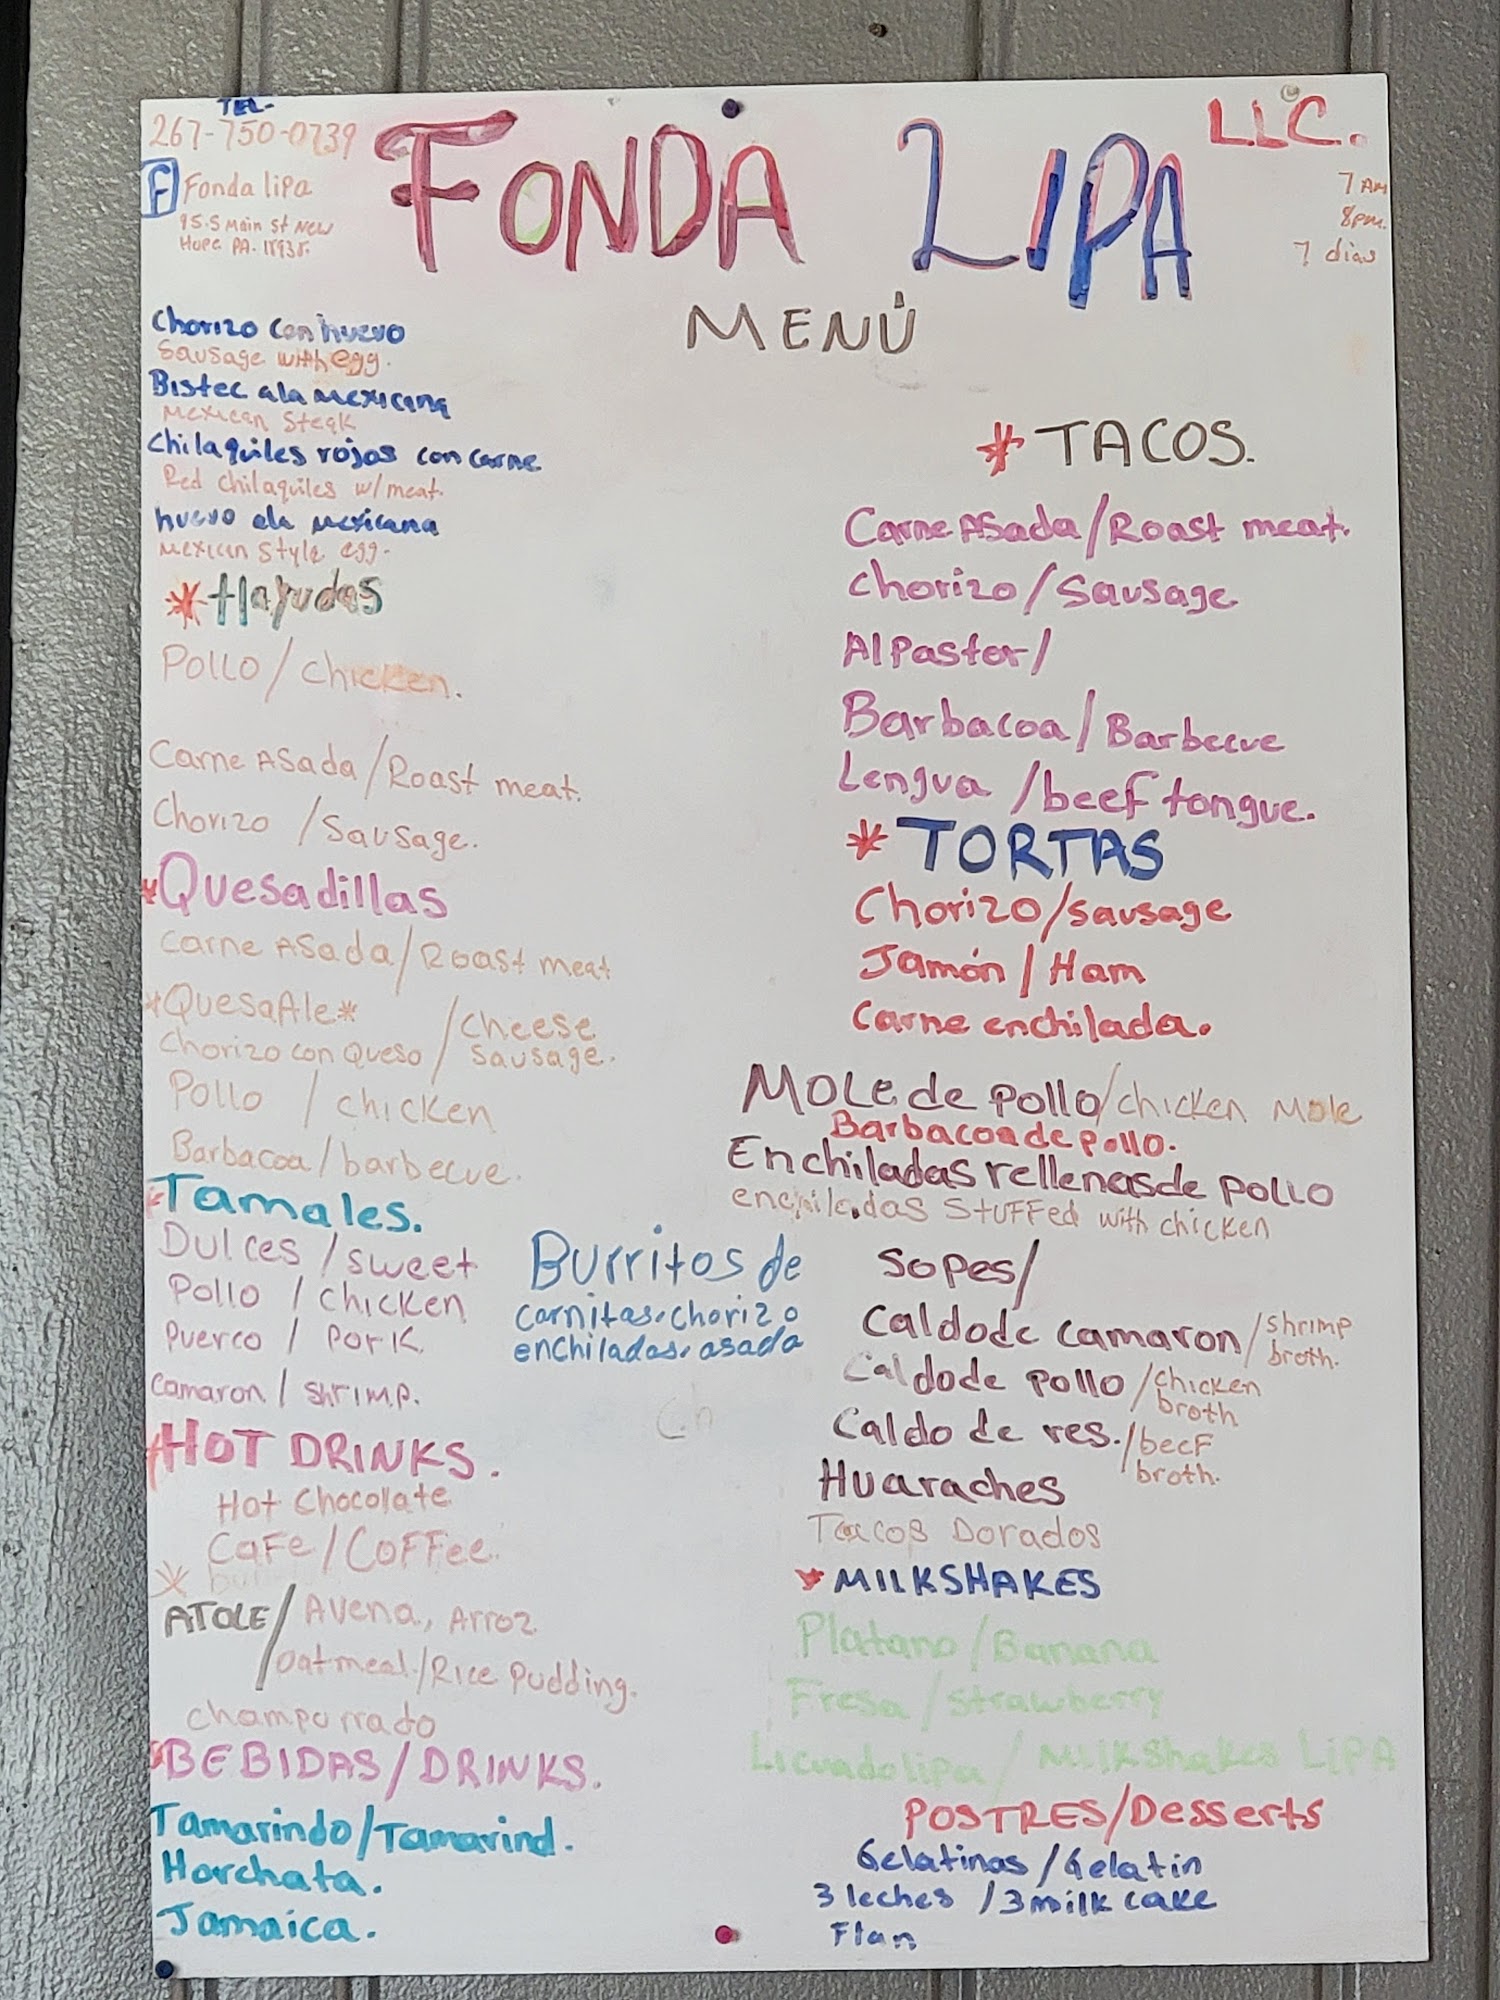 TEL-
267-750-0739
F Fonda lipa
95.S Main St New
Hope PA. 18938.
FONDA LIPA
LLC.
7 AM
8pm.
7 dias
MENÚ
Chorizo con huevo
Sausage with egg.
Bistec ala mexicana
Mexican Steak
Chilaquiles rojos con carne
Red chilaquiles w/meat.
huevo ala mexicana
Mexican Style egg.
*tlayudas
Pollo/chicken.
Carne ASada/Roast meat.
Chorizo /Sausage.
*Quesadillas
Carne ASada/Roast meat
*QuesaAle* /cheese
Chorizo con Queso / Sausage.
Pollo / chicken
Barbacoa/barbecue.
*Tamales.
Dulces /sweet
Pollo /chicken
Puerco / Pork.
Camaron / shrimp.
*HOT DRINKS.
Hot Chocolate
Cafe/Coffee.
ATOLE/ Avena, Arroz
oatmeal/Rice Pudding.
champurrado
*BEBIDAS/DRINKS.
Tamarindo/Tamarind.
Horchata.
Jamaica.
Burritos de
carnitas.chorizo
enchiladas.asada
Ch
* TACOS.
Carne ASada/Roast meat.
Chorizo/Sausage
Al Pastor/
Barbacoa/Barbecue
Lengua /beef tongue.
* TORTAS
Chorizo/sausage
Jamón/Ham
Carne enchilada.
Mole de pollo/chicken Mole
Barbacoa de pollo.
Enchiladas rellenas de pollo
enchiladas stuffed with chicken
Sopes/
Caldo de camaron/shrimp
broth.
Caldo de pollo /chicken
broth
Caldo de res./beef
broth.
Huaraches
Tacos Dorados
*MILKSHAKES
Platano/Banana
Fresa/strawberry
Licuado lipa/ Milkshakes LIPA
POSTRES/Desserts
Gelatinas/Gelatin
3 leches /3 milk cake
Flan